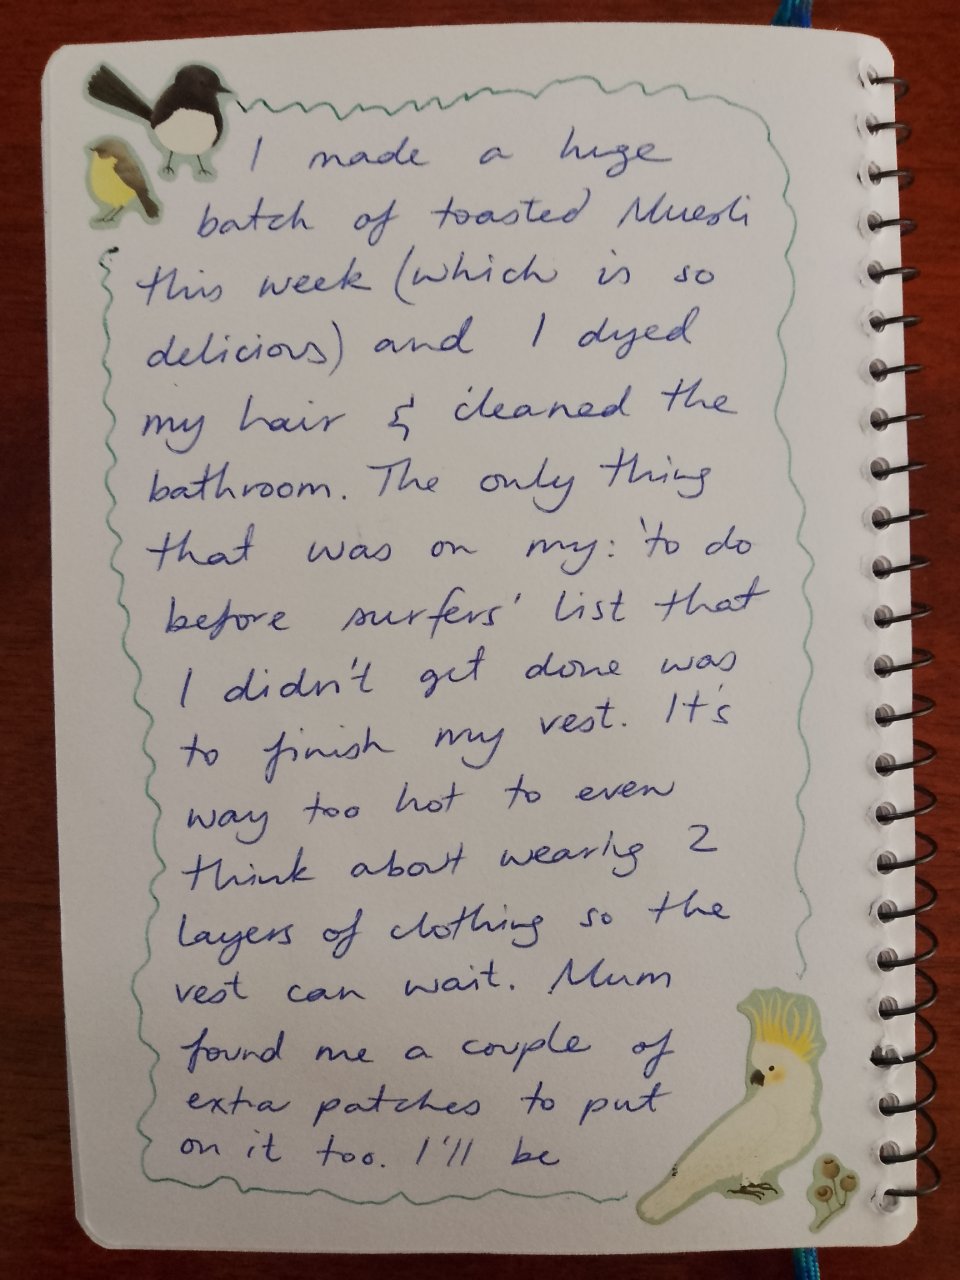 I made a huge
batch of toasted Muesli
this week (which is so
delicious) and I dyed
my hair & cleaned the
bathroom. The only thing
that was on my: 'to do
before surfers' list that
I didn't get done was
to finish my vest. It's
way too hot to even
think about wearing 2
layers of clothing so the
vest can wait. Mum
found me a couple of
extra patches to put
on it too. I'll be